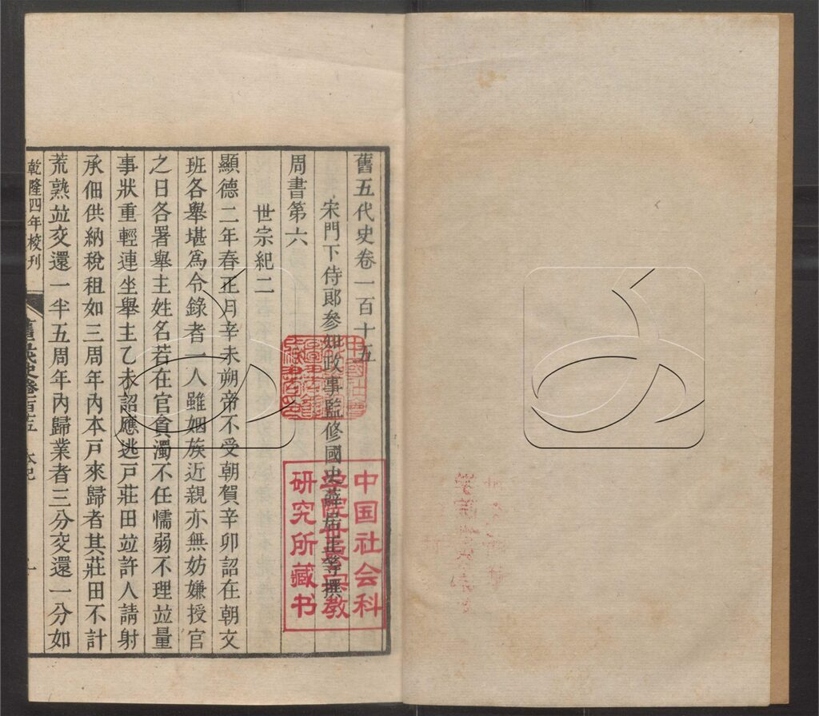 舊五代史卷一百十五
宋門下侍郎參知政事監修國史薛居正等撰
周書第六
世宗紀二
顯德二年春正月辛未朔帝不受朝賀辛卯詔在朝文
班各舉堪爲令錄者一人雖姻族近親亦無妨嫌授官
之日各署舉主姓名若在官貪濁不任懦弱不理竝量
事狀重輕連坐舉主乙未詔應逃戸莊田竝許人請射
承佃供納稅租如三周年內本戸來歸者其莊田不計
荒熟竝交還一半五周年內歸業者三分交還一分如
乾隆四年校刊
舊五代史卷一百十五 本紀 一
中国社会科
学院世界宗教
研究所藏书